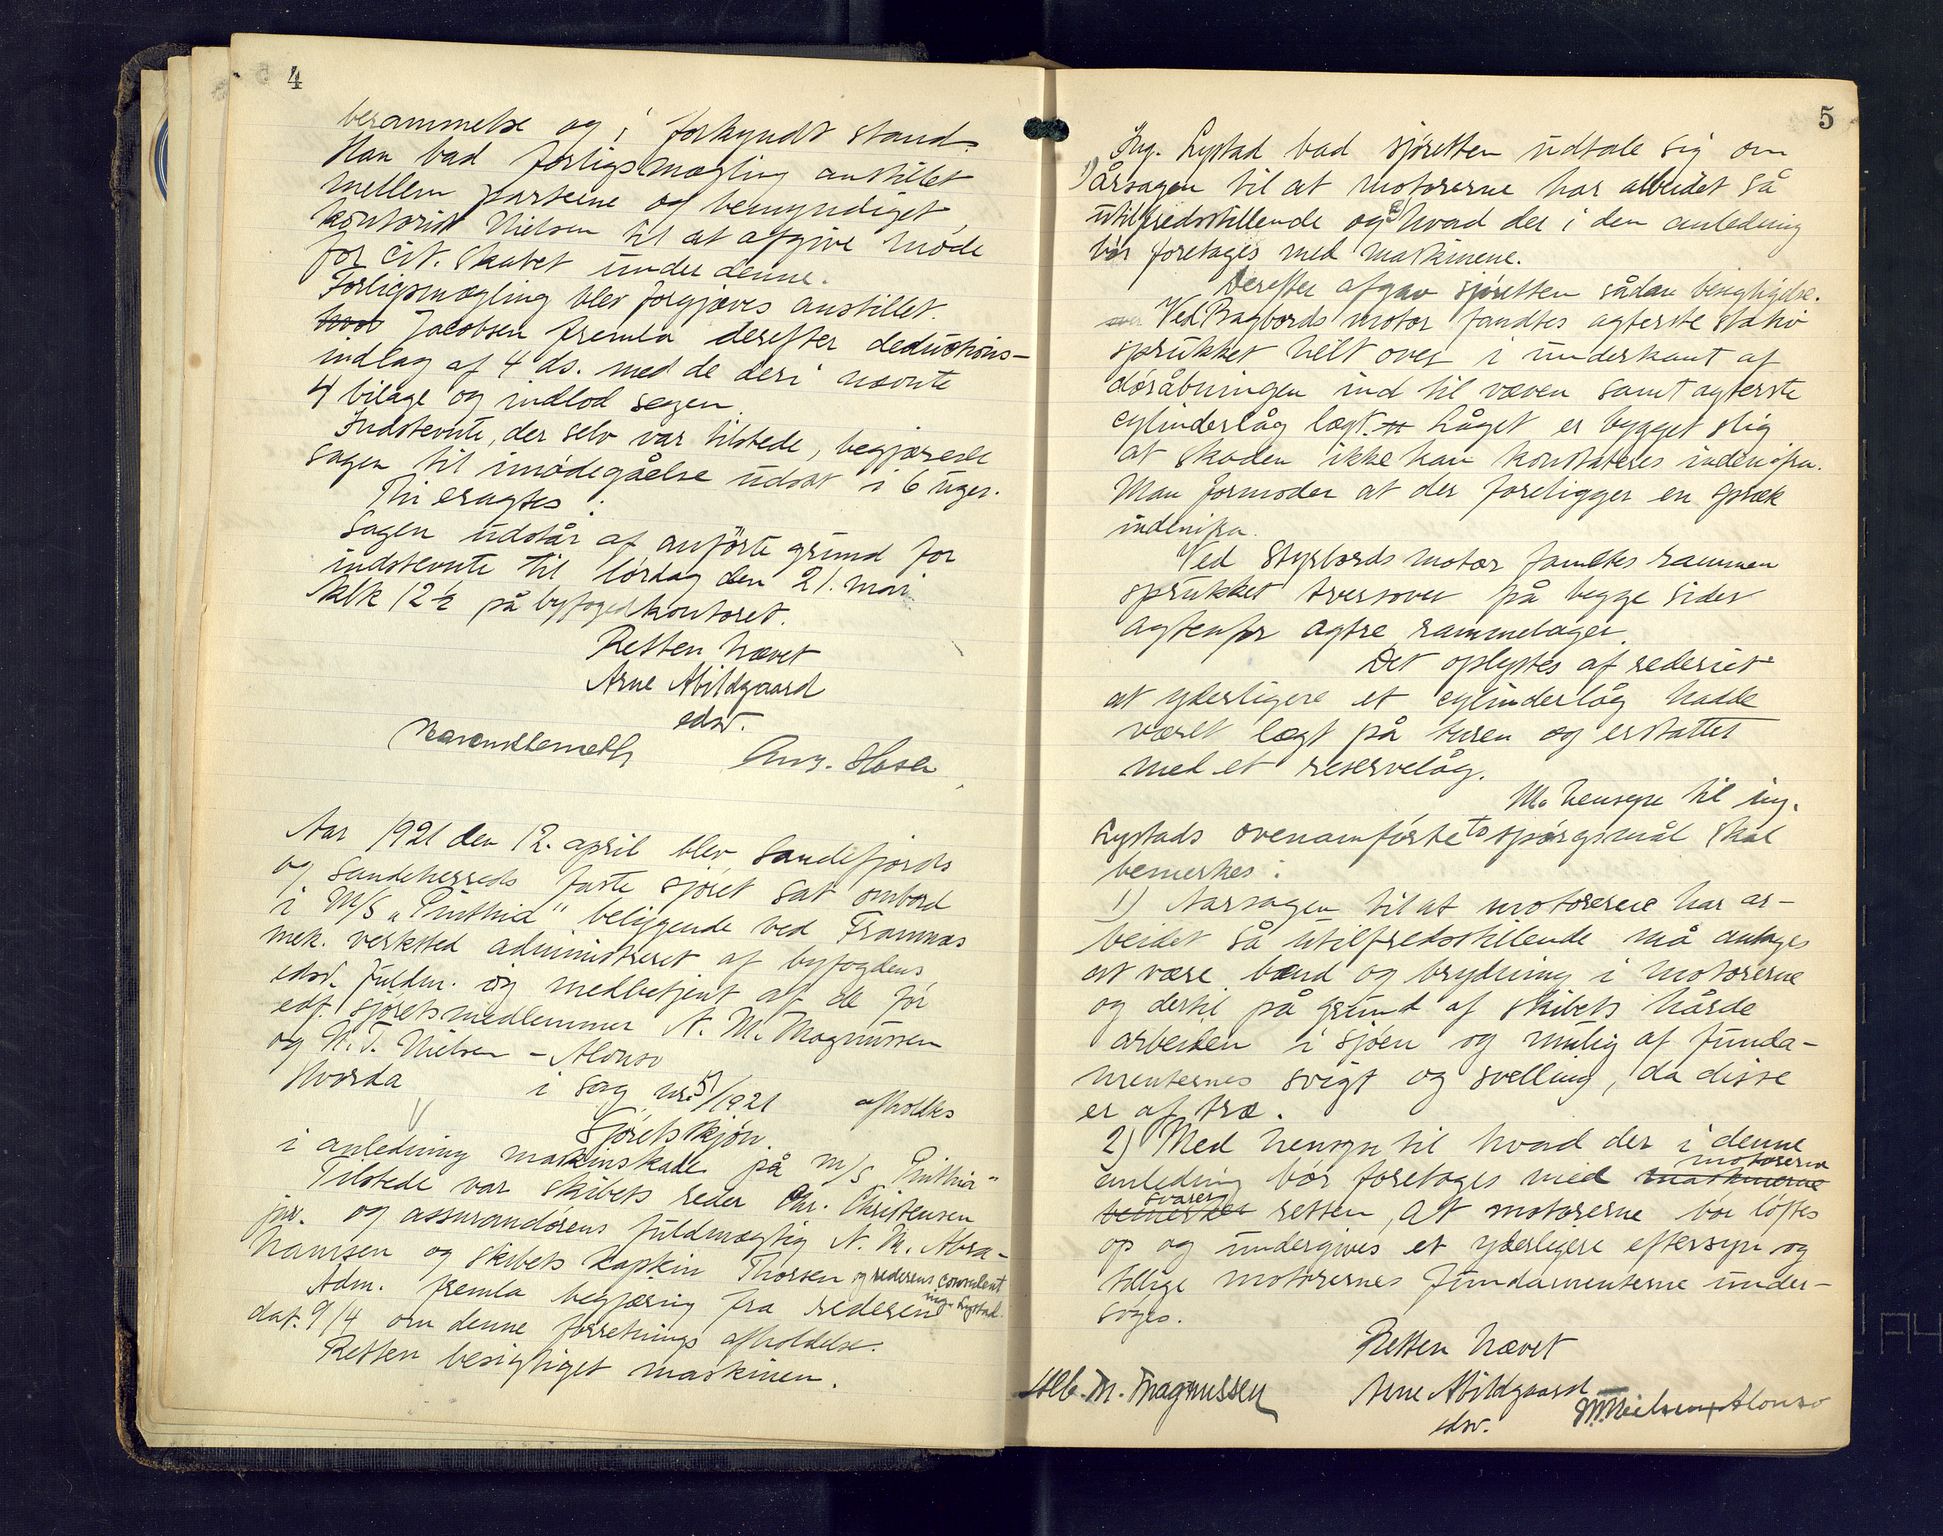 4
berammelse og i forkyndt stand.
Han bad forligsmægling anstillet
mellem parterne og bemyndiget
kontorist Nielsen til at afgive møde
for cit. skabet under denne.
Forligsmægling blev forgjæves anstillet.
Jacobsen fremla derefter deductions-
indlag af 4 ds. med de deri nævnte
4 bilage og indlod sagen.
Indstevnte, der selv var tilstede, begjærede
sagen til imødegåelse udsat i 6 uger.
Thi eragtes:
Sagen udstår af anførte grund for
indstevnte til lørdag den 21. mai
klk 12½ på byfogedkontoret.
Retten hævet
Arne Abildgaard
edsv.
Aar 1921 den 12. april blev Sandefjords
og Sandeherreds faste sjøret sat ombord
i M/S "Pinthia" beliggende ved Framnæs
mek. verksted administreret af byfogdens
edsv. fuldm. og medbetjent af de før
edf. sjøretsmedlemmer A. M. Magnussen
og N. T. Nielsen-Alonso
Hvorda i sag nr. 5/1921 afholdtes
Sjøretsskjøn.
i anledning maskinskade på M/S "Pinthia"
Tilstede var skibets reder Chr. Christensen
jnr. og assurandørens fuldmægtig N. M. Abra-
hamsen og skibets kaptein Thorsen og rederens consulent
ing. Lystad.
Adm. fremla begjæring fra rederen
dat. 9/4 om denne forretnings afholdelse.
Retten besigtiget maskinen.
5
Ing. Lystad bad sjøretten udtale sig om
1) årsagen til at motorerne har arbeidet så
utilfredsstillende og 2) hvad der i den anledning
bør foretages med maskinene.
Derefter afgav sjøretten sådan besigtigelse.
Ved Bagbords motor fandtes agterste stativ
sprukket helt over i underkant af
døråbningen ind til væven samt agterste
cylinderlåg lægt. Låget er bygget slig
at skaden ikke kan konstateres indenifra.
Man formoder at der foreligger en spræk
indenifra.
Ved Styrbords motor fandtes rammen
sprukket tversover på begge sider
agtenfor agtre rammelager.
Det oplystes af rederiet
at yderligere et cylinderlåg hadde
været lægt på turen og erstattet
med et reservelåg.
M. hensyn til ing.
Lystads ovenanførte to spørgsmål skal
bemerkes:
1) Aarsagen til at motorerne har ar-
beidet så utilfredsstillende må antages
at være bænd og brydning i motorerne
og dertil på grund af skibets hårde
arbeiden i sjøen og mulig af funda-
menternes svigt og svelling, da disse
er af træ.
2) Med hensyn til hvad der i denne
anledning bør foretages med maskinerne motorerne
bemerker svarer retten, At motorerne bør løftes
op og undergives et yderligere eftersyn og
tillige motorernes fundamenterne under-
søges.
Retten hævet
Alb. M. Magnussen Arne Abildgaard N.T. Nielsen-Alonso
edsv.